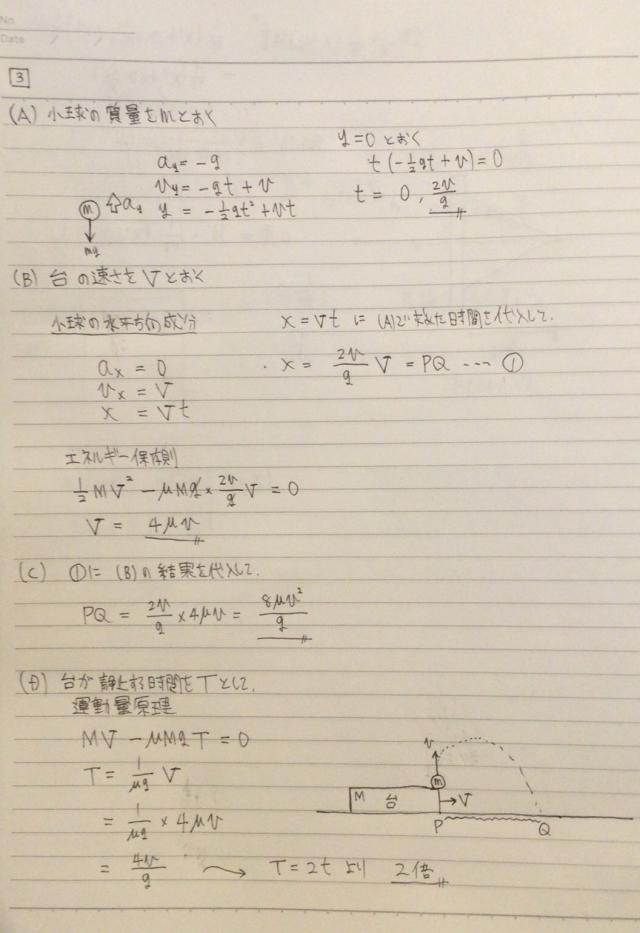 No.
Date
3
(A) 小球の質量をmとおく
a_y = -g
v_y = -gt + v
y = -1/2 gt² + vt
m
a_y
mg
y=0 とおく
t(-1/2 gt + v) = 0
t = 0, 2v/g
(B) 台の速さをVとおく
小球の水平方向成分
a_x = 0
v_x = V
x = Vt
x = Vt に (A)で求めた時間を代入して.
x = 2v/g V = PQ ---- ①
エネルギー保存則
1/2 MV² - μMg × 2v/g V = 0
V = 4μv
(C) ①に (B)の結果を代入して.
PQ = 2v/g × 4μv = 8μv²/g
(D) 台が静止する時間をTとして.
運動量原理
MV - μMgT = 0
T = 1/μg V
= 1/μg × 4μv
= 4v/g → T = 2t より 2倍
v
m
M 台
V
P Q